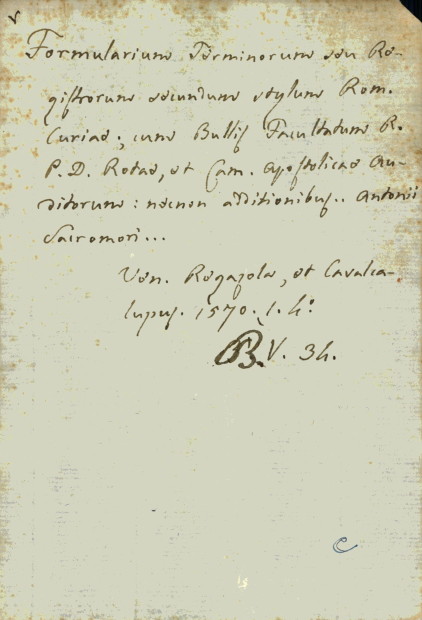 Formularium Terminorum seu Re-
gistrorum secundum stylum Rom.
Curiae; cum Bullis Facultatum R.
P. D. Rotae, et Cam. Apostolicae Au-
ditorum: necnon additionibus.. Antonii
Sacromori...
Ven. Regazola, et Cavalca-
lupus. 1570. 1. 4º
B. V. 34.
C